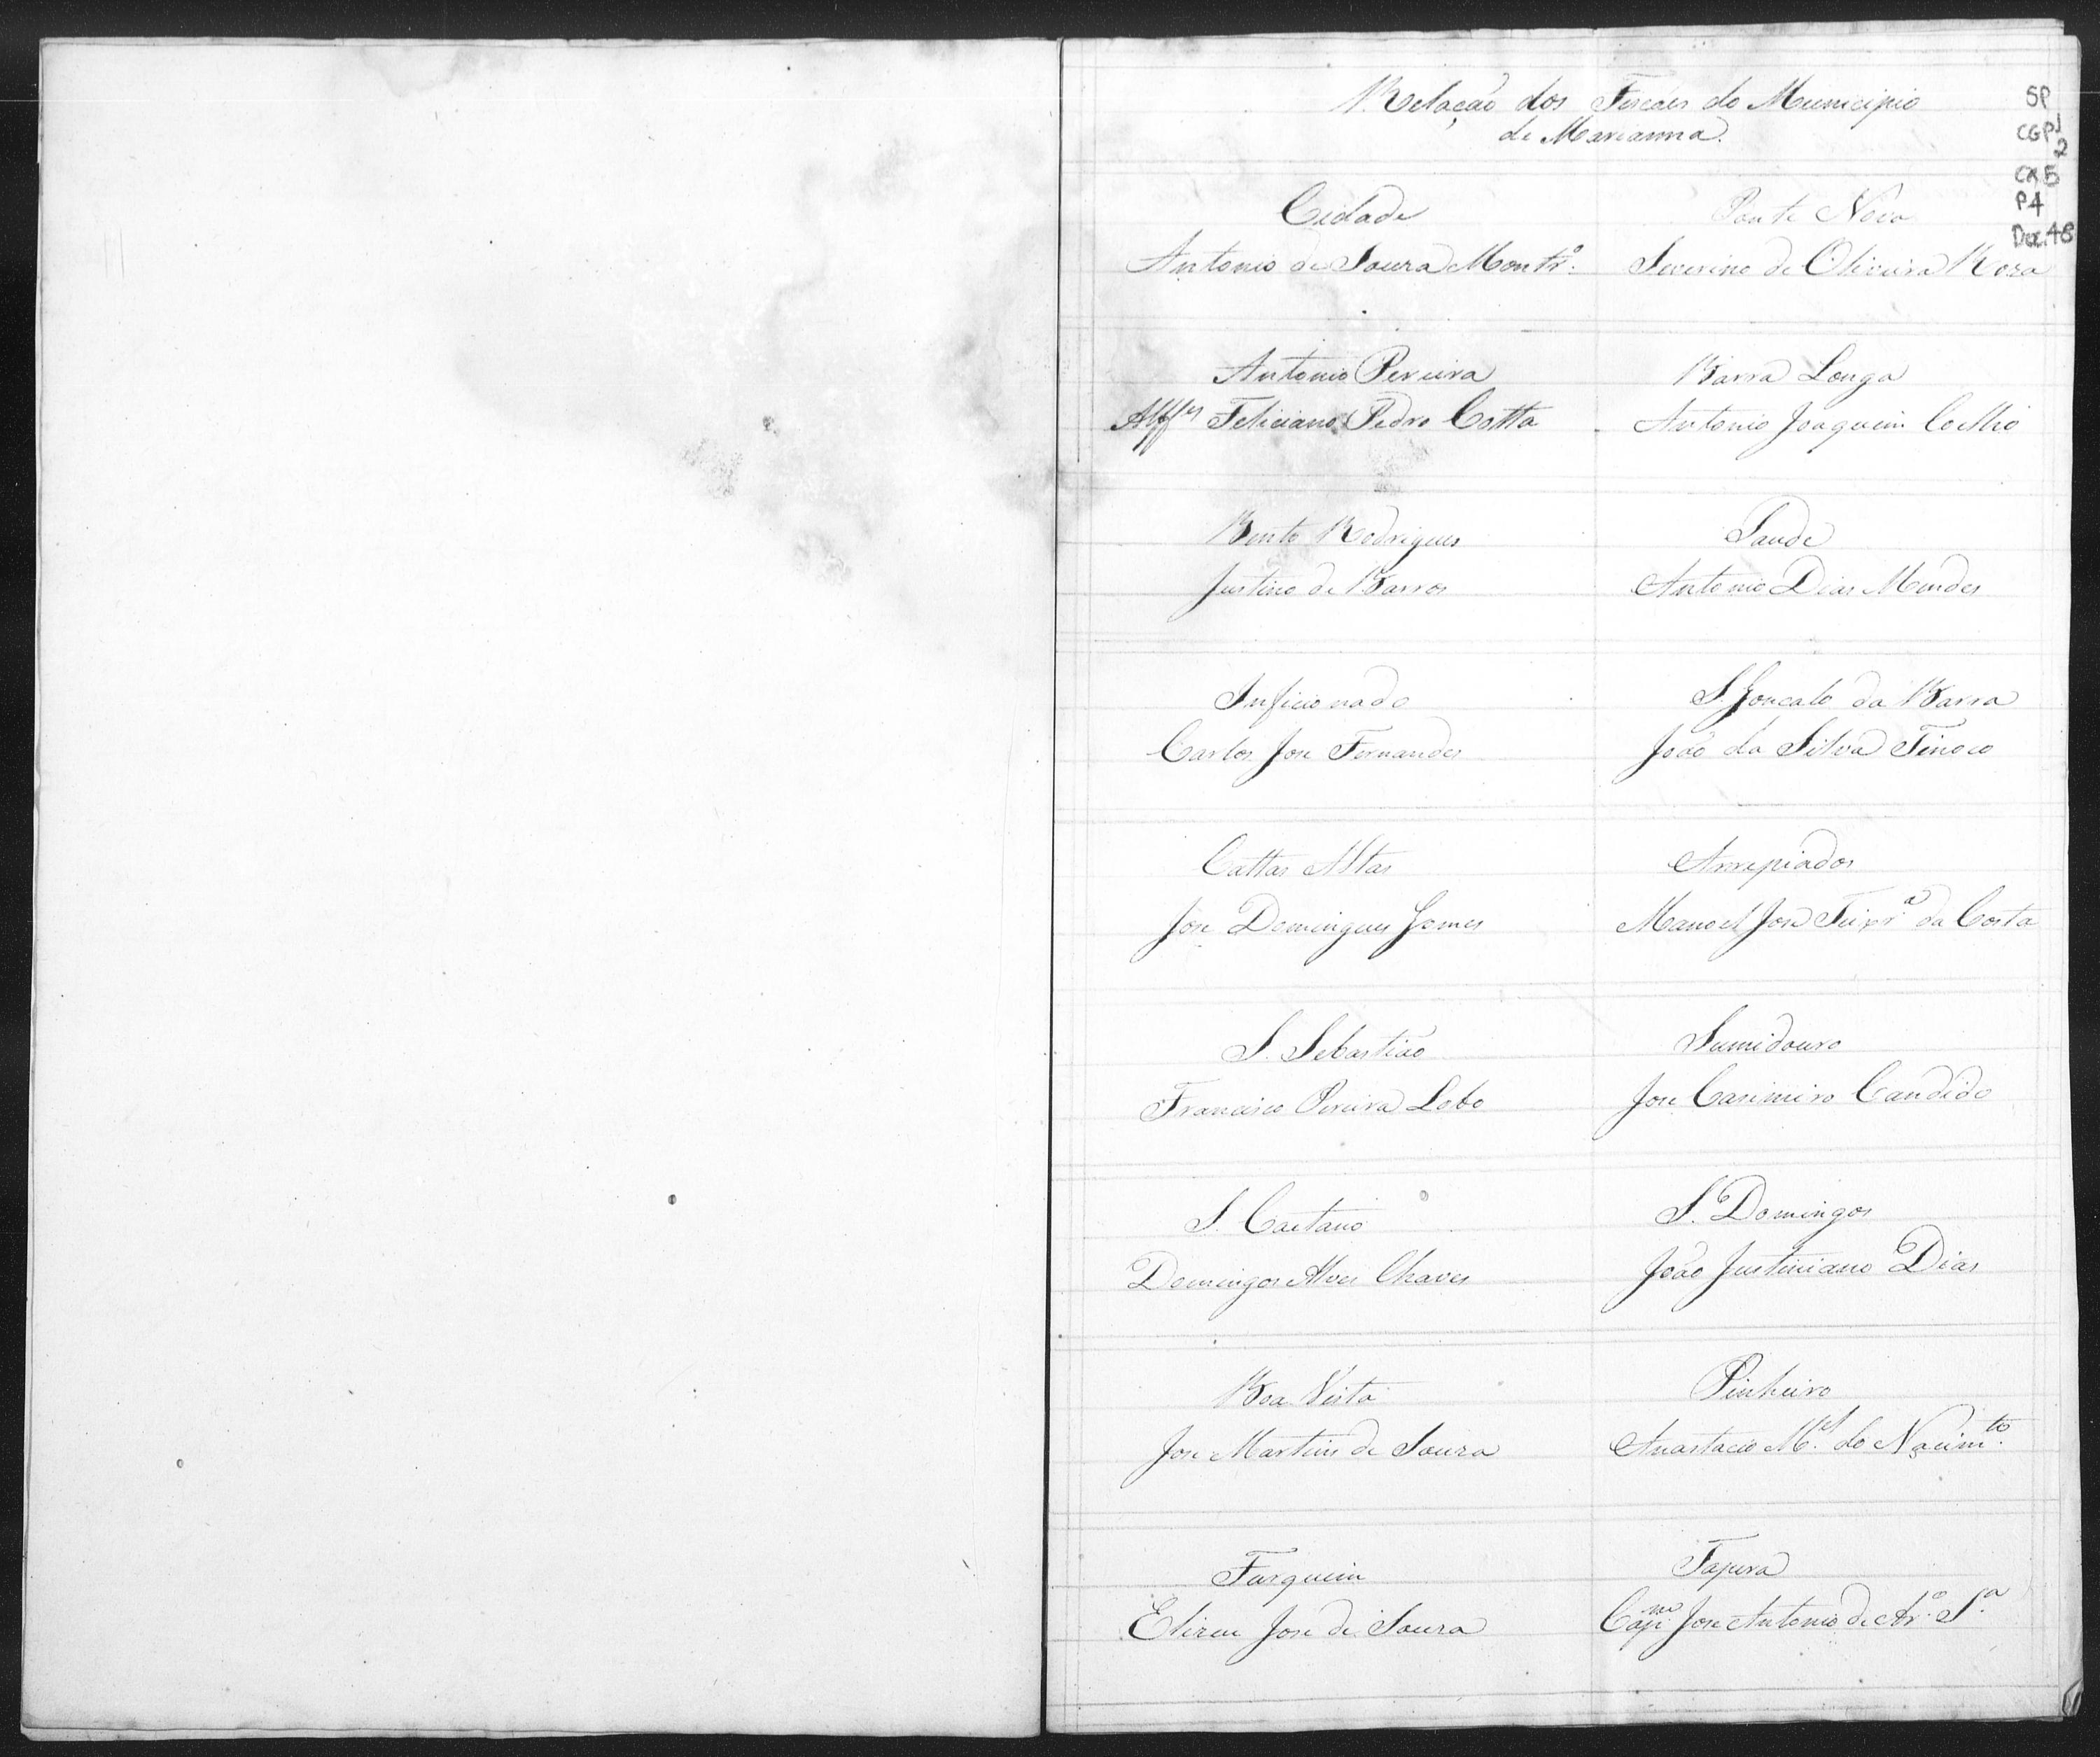 Relação dos Fiscaes do Municipio
de Marianna.
SP
CGP1
2
CX5
P4
Doc. 48
Cidade
Antonio de Souza Montrº.
Ponte Nova
Severino de Oliveira Roza
Antonio Pereira
Alffes Feliciano Pedro Cotta
Barra Longa
Antonio Joaquim Coelho
Bento Rodrigues
Justino de Barros
Saude
Antonio Dias Mendes
Inficionado
Carlos Jose Fernandes
S. Gonçalo da Barra
João da Silva Tinoco
Cattas Altas
Jose Domingues Gomes
Arrepiados
Manoel Jose Teixrª. da Costa
S. Sebastião
Francisco Pereira Lobo
Sumidouro
Jose Casimiro Candido
S. Caetano
Domingos Alves Chaves
S. Domingos
João Justiniano Dias
Boa Vista
Jose Martins de Souza
Pinheiro
Anastacio Mel. do Nacimto.
Furquim
Elizeu Jose de Souza
Tapera
Capm. Jose Antonio de Arº. Sª.